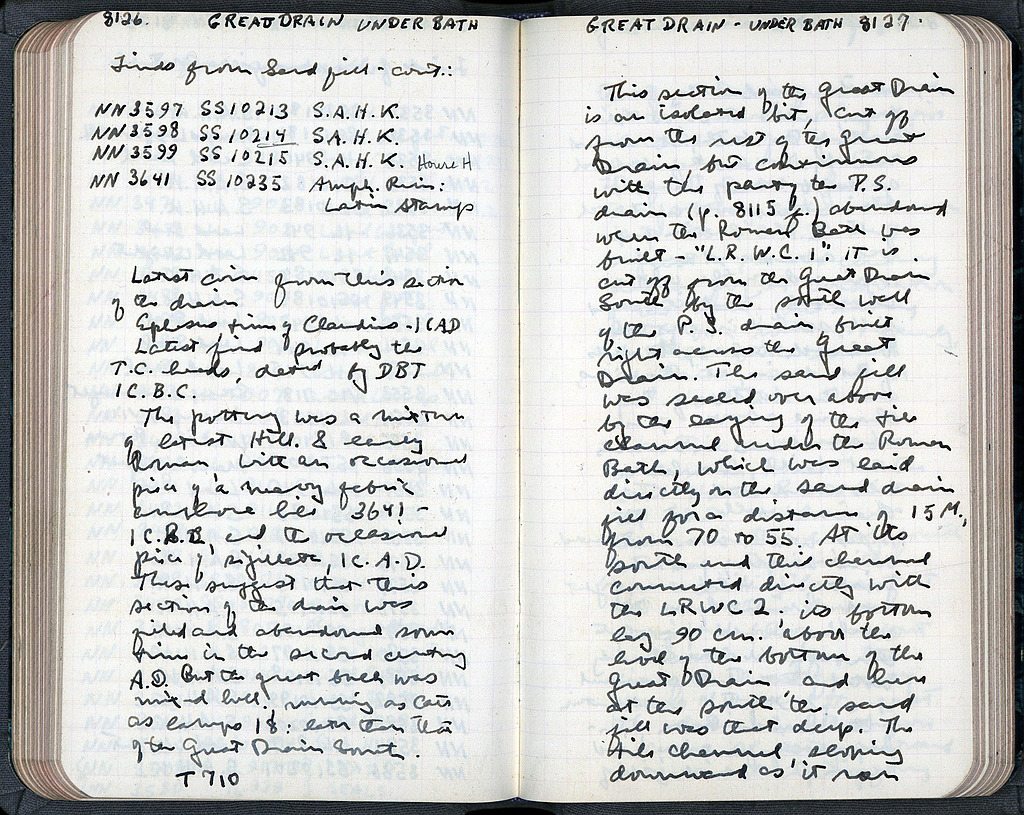 8126. GREAT DRAIN UNDER BATH
Finds from Sand fill - cont.:
NN 3597 SS 10213 S.A.H.K.
NN 3598 SS 10214 S.A.H.K.
NN 3599 SS 10215 S.A.H.K. House H
NN 3641 SS 10235 Amph. Rim:
Latin Stamp
Latest coin from this section
of the drain
Ephesus time of Claudius - I C AD
Latest find probably the
T.C. heads dated by DBT
I C. B.C.
The pottery was a mixture
of latest Hell. & early
Roman with an occasional
piece of a heavy fabric
amphora like 3641 -
I C. and the occasional
piece of sigillata, I C. A.D.
These suggest that this
section of the drain was
filled and abandoned some
time in the second century
A.D. But the great bulk was
mixed Hell. running as late
as lamps 18. later than this
of the Great Drain South
T 710
GREAT DRAIN - UNDER BATH 8127.
This section of the Great Drain
is an isolated bit, cut off
from the rest of the Great
Drain but continuous
with the part of the P.S.
drain (p. 8115 ff.) abandoned
when the Roman Bath was
built - "L.R.W.C. 1" it is
cut off from the Great Drain
South by the south wall
of the P.S. drain built
right across the Great
Drain. The sand fill
was sealed over above
by the laying of the tile
channel under the Roman
Bath, which was laid
directly on the sand drain
fill for a distance of 15 M.,
from 70 to 55. At its
south end this channel
connected directly with
the LRWC 2. its bottom
lay 90 cm. above the
level of the bottom of the
Great Drain and thus
at the south the sand
fill was that deep. The
tile channel sloping
downward as it ran